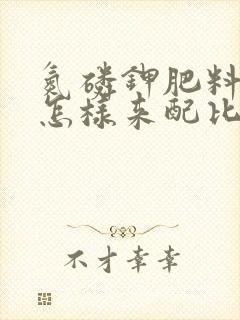 氮磷钾肥料
怎样来配比
不才幸幸